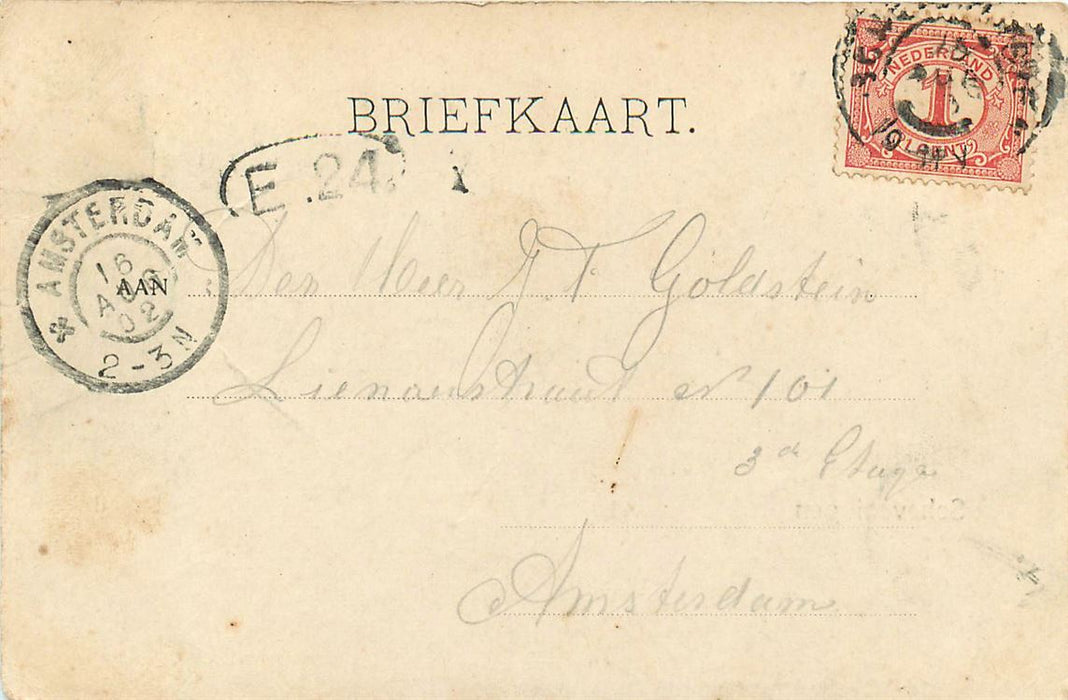 BRIEFKAART.
NEDERLAND
1
CENT
E.24.
AMSTERDAM
16
AUG
02
2-3N
AAN
Den Heer J. F. Goldstein
No 101
3de Etage
Amsterdam